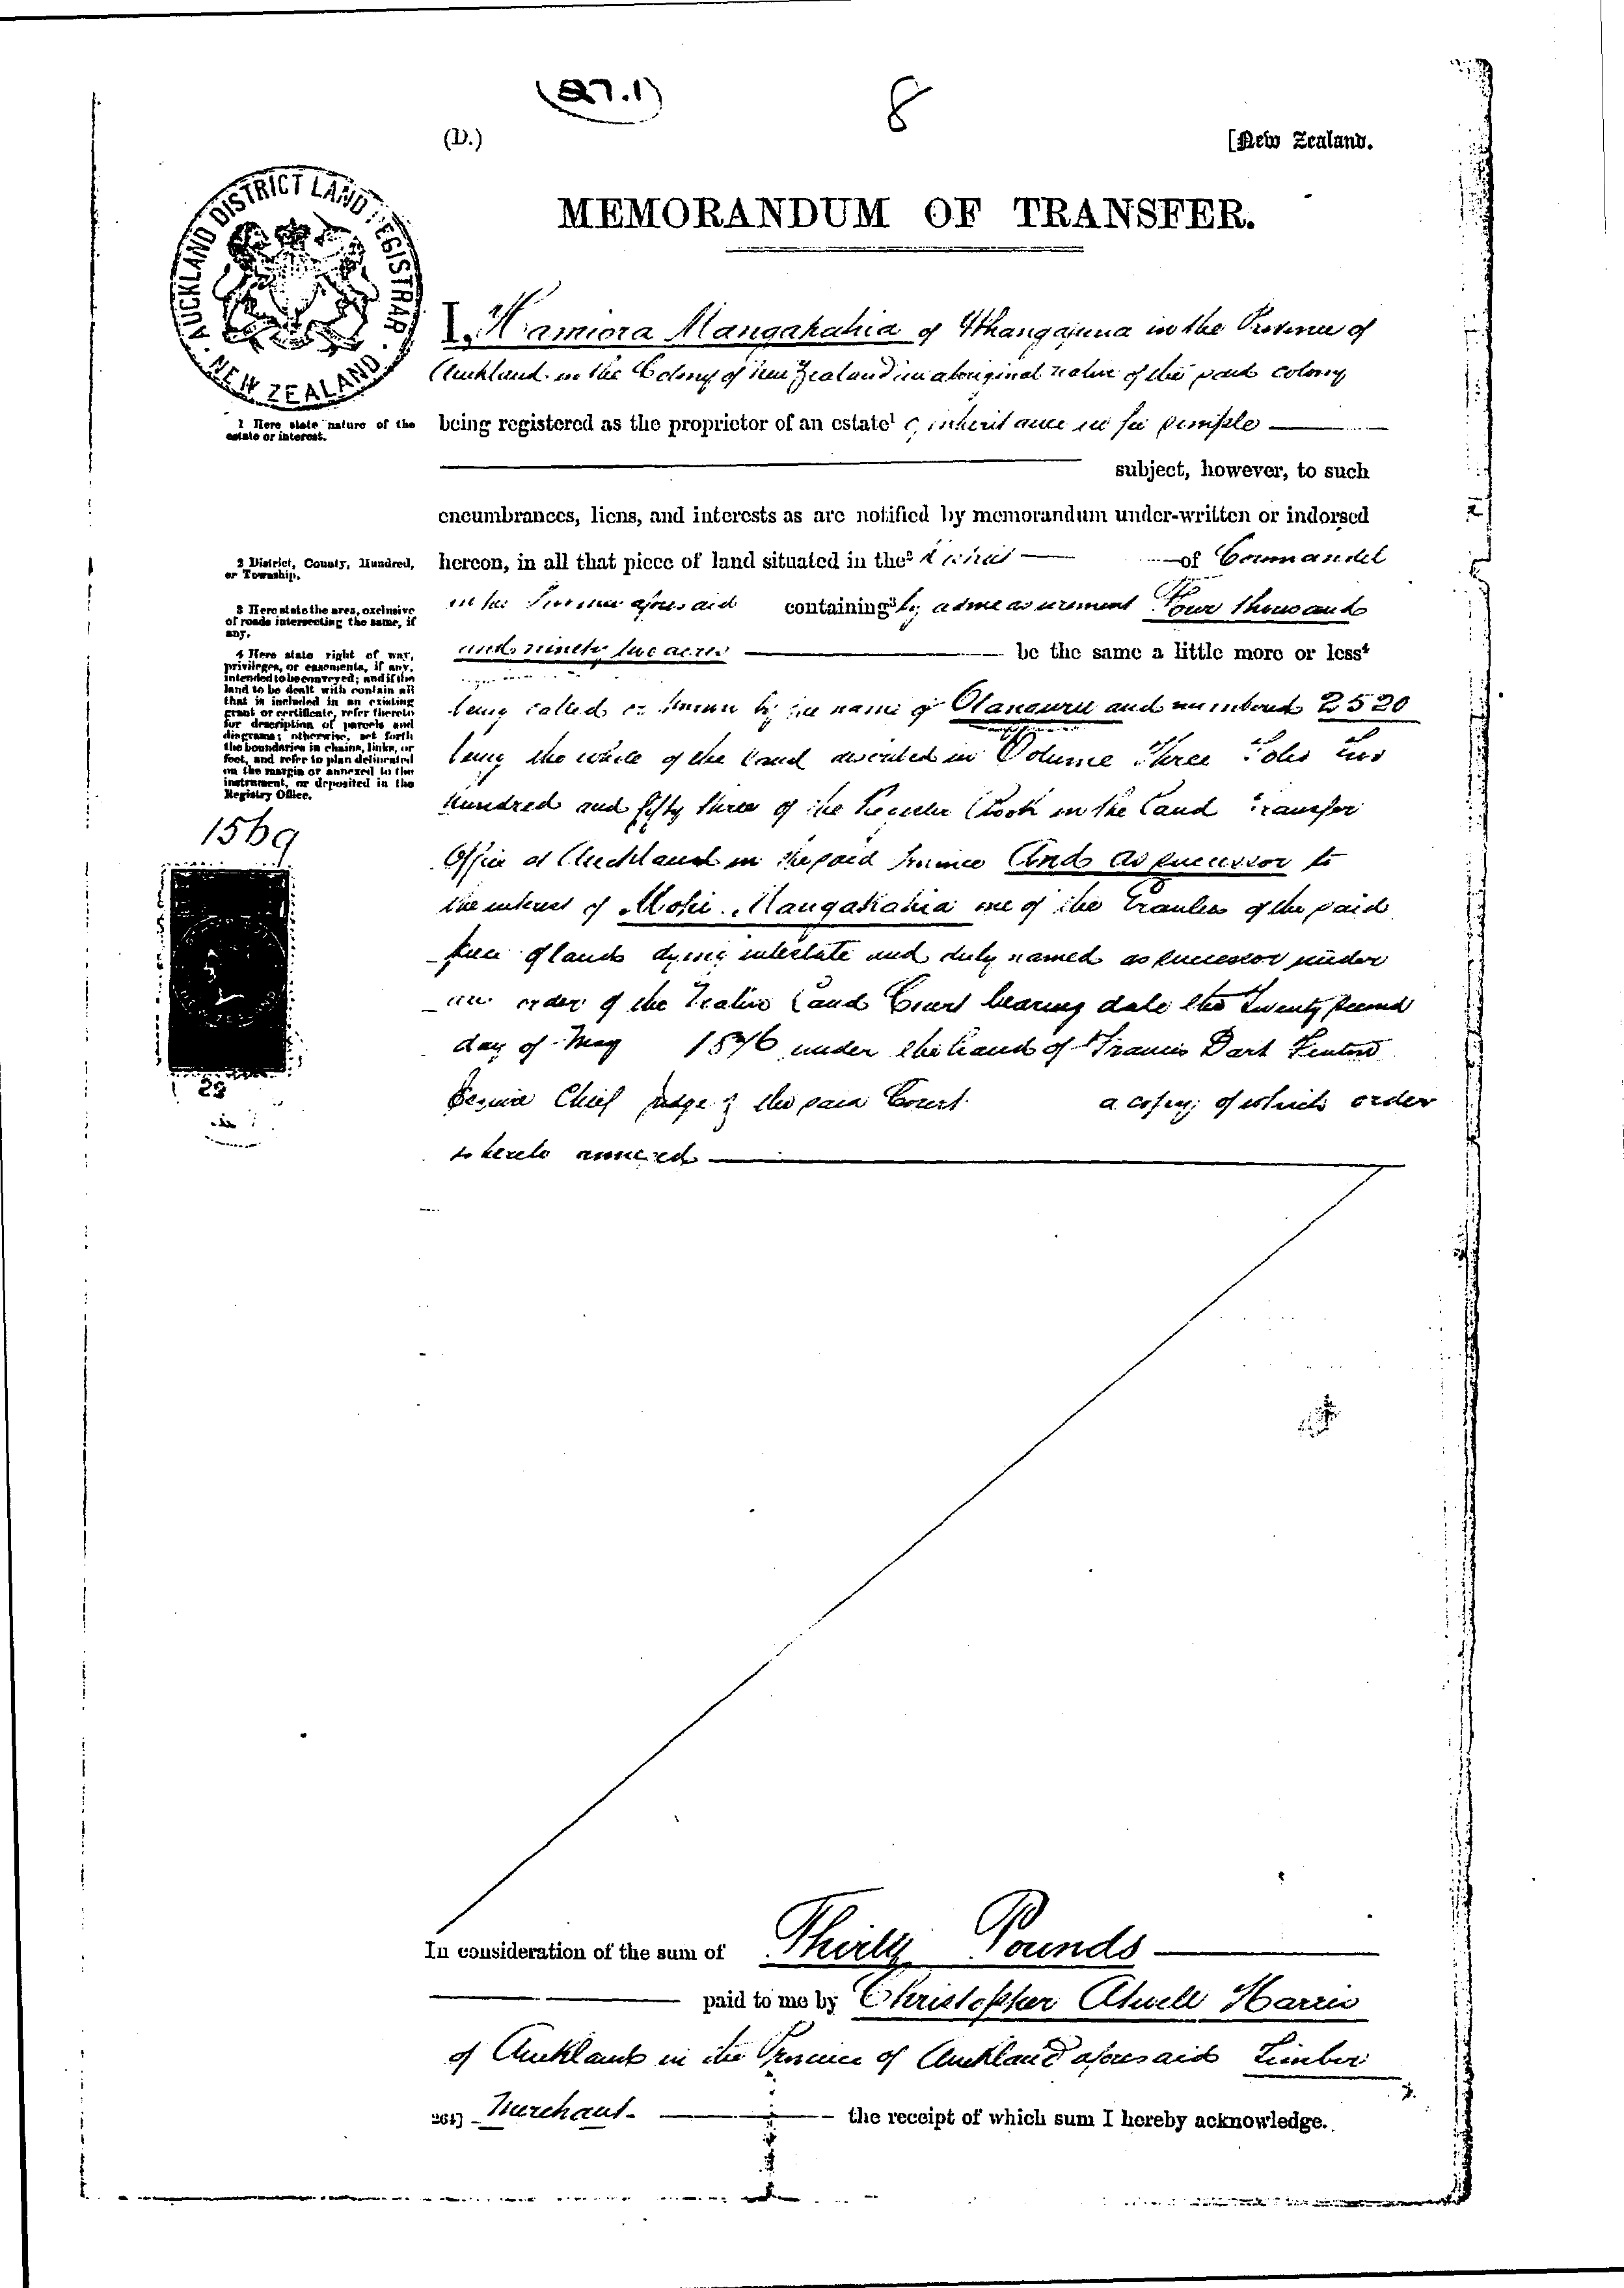 (27.1)
8
(D.)
[New Zealand.
MEMORANDUM OF TRANSFER.
AUCKLAND DISTRICT LAND REGISTRAR. NEW ZEALAND.
I, Hamiora Mangakahia of Whangapoua in the Province of
Auckland in the Colony of New Zealand an aboriginal native of the said colony
1 Here state nature of the
estate or interest.
being registered as the proprietor of an estate¹ of inheritance in fee simple
subject, however, to such
encumbrances, liens, and interests as are notified by memorandum under-written or indorsed
2 District, County, Hundred,
or Township.
hereon, in all that piece of land situated in the² District of Coromandel
3 Here state the area, exclusive
of roads intersecting the same, if
any.
in the Province aforesaid containing³ by admeasurement Four thousand
and ninety two acres be the same a little more or less⁴
4 Here state right of way,
privileges, or easements, if any,
intended to be conveyed; and if the
land to be dealt with contain all
that is included in an existing
grant or certificate, refer thereto
for description of parcels and
diagrams; otherwise, set forth
the boundaries in chains, links, or
feet, and refer to plan delineated
on the margin or annexed to the
instrument, or deposited in the
Registry Office.
being called or known by the name of and numbered 2520
being the whole of the land described in Volume Three Folio Two
hundred and fifty three of the Register Book in the Land Transfer
Office at Auckland in the said Province And as successor to
the interest of Mohi Mangakahia one of the Grantees of the said
piece of land dying intestate and duly named as successor under
an order of the Native Land Court bearing date the Twenty second
day of May 1876 under the hand of Francis Dart Fenton
Esquire Chief Judge of the said Court a copy of which order
is hereto annexed
1569
29
In consideration of the sum of Thirty Pounds
paid to me by Christopher Atwell Harris
of Auckland in the Province of Auckland aforesaid Timber
264] Merchant the receipt of which sum I hereby acknowledge.